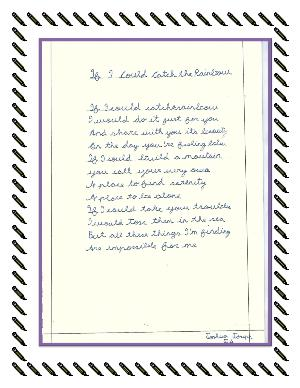 If I Could Catch the Rainbow
If I could catch a rainbow
I would do it just for you
And share with you its beauty
On the day you're feeling blue
If I could build a moutain
you call your very own
A place to find serenity
A place to be alone
If I could take your troubles
I would toss them in the sea
But all these things I'm finding
Are impossible for me
Joseph